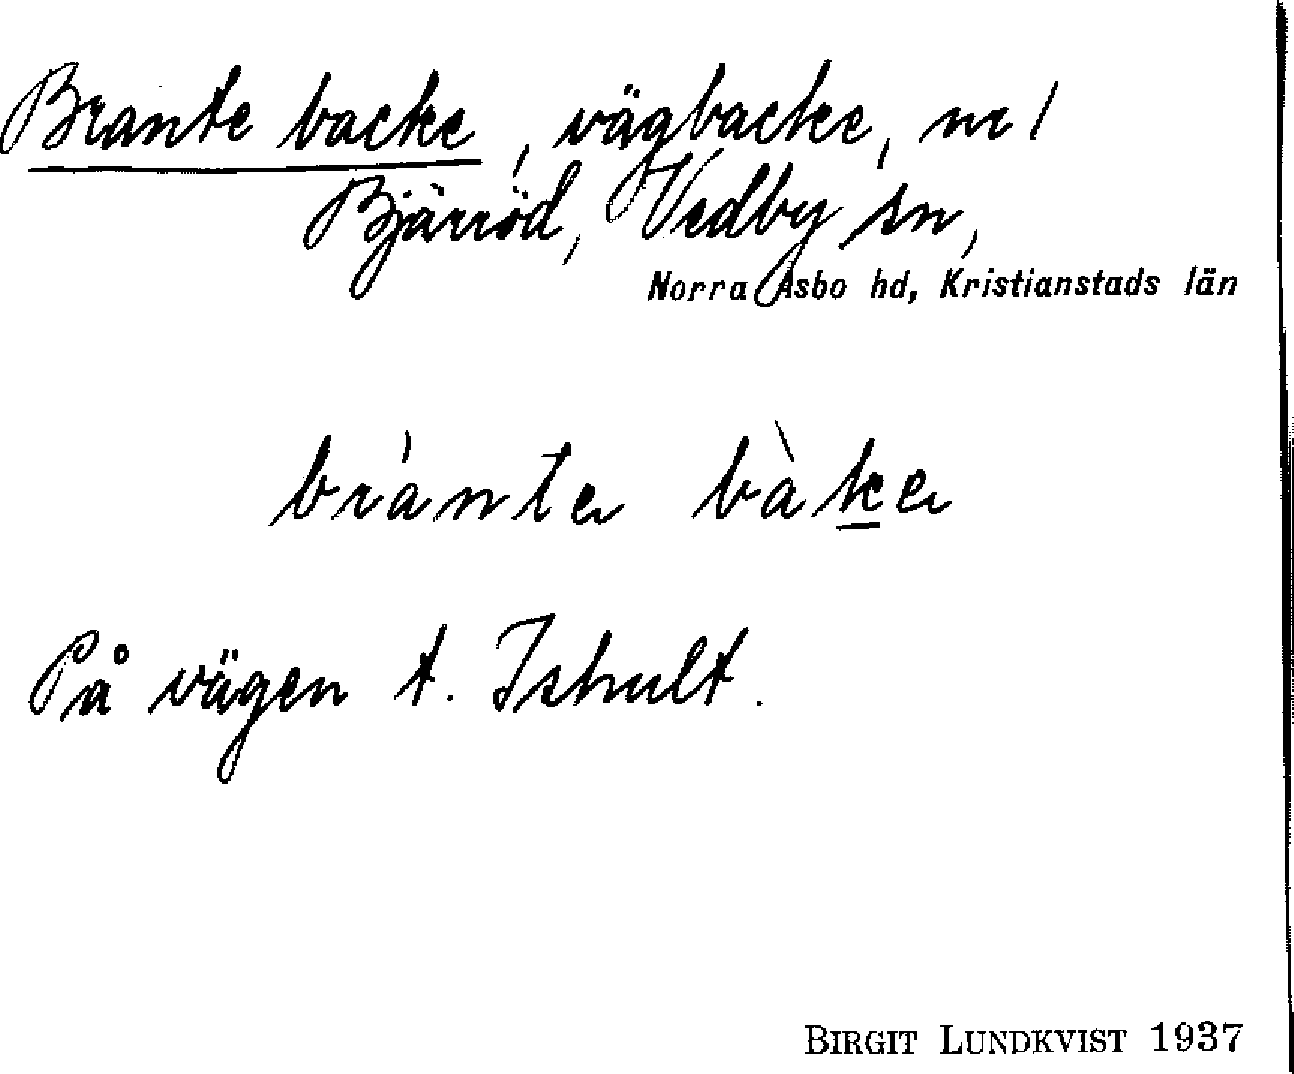 Brante backe, vägbacke, nr 1
Bjärröd, Vedby sn,
Norra Åsbo hd, Kristianstads län
brántə bàkə
På vägen t. Ishult.
BIRGIT LUNDKVIST 1937